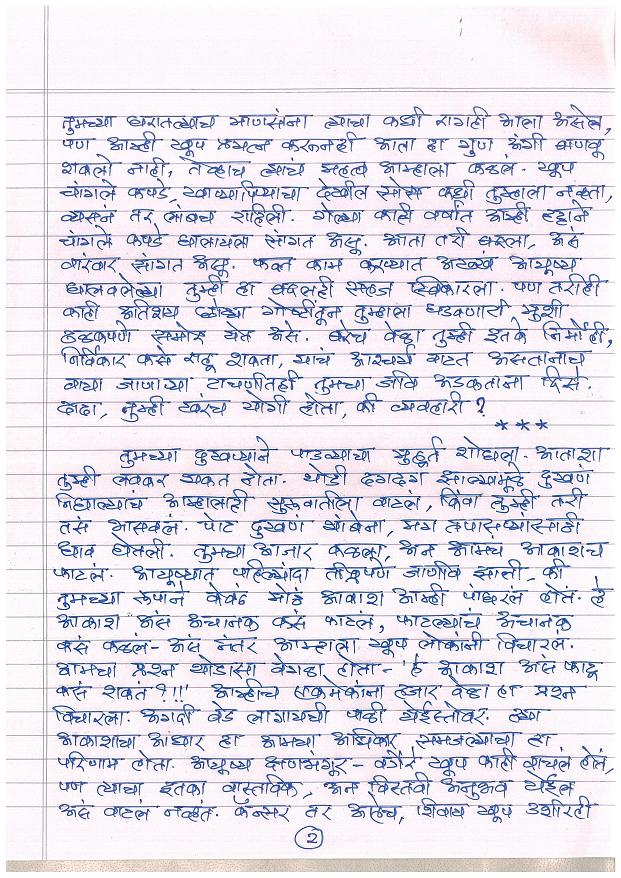 तुमच्या घरातल्याच माणसांना त्याचा कधी रागही आला असेल,
पण आम्ही खूप प्रयत्न करूनही आता हा गुण अंगी बाणवू
शकलो नाही, तेव्हाच त्याचं महत्व आम्हाला कळलं. खूप
चांगले कपडे, खाण्यापिण्याचा देखील सोस कधी तुम्हाला नव्हता,
व्यसनं तर लांबच राहिली. गेल्या काही वर्षांत आम्ही हट्टाने
चांगले कपडे घालायला सांगत असू. आता तरी बदला, असं
वारंवार सांगत असू. फक्त काम करण्यात अख्खं आयुष्य
घालवलेल्या तुम्ही हा बदलही सहज स्विकारला. पण तरीही
काही अतिशय छोट्या गोष्टींतून तुम्हाला घडवणारी खुशी
हळकपणे समोर येत असे. बरेच वेळा तुम्ही इतके निर्मोही,
निर्विकार कसे राहू शकता, याचं आश्चर्य वाटत असतानाच
बाया जाणाऱ्या टाचणीतही तुमचा जीव अडकताना दिसे.
दादा, तुम्ही खरंच योगी होता, की व्यवहारी?
***
तुमच्या दुखण्याने पाडव्याचा मुहूर्त शोधला. आताशा
तुम्ही लवकर थकत होता. थोडी दगदग झाल्यामुळे दुखणं
निघाल्याचं आम्हालाही सुरूवातीला वाटलं, किंवा तुम्ही तरी
तसं भासवलं. पोट दुखणं थांबेना, मग तपासण्यांसाठी
धाव घेतली. तुमचा आजार कळला, अन आमचं आकाशच
फाटलं. आयुष्यात पहिल्यांदा तीव्रपणे जाणीव झाली - की
तुमच्या रूपाने केवढं मोठं आकाश आम्ही पांघरलं होतं. हे
आकाश असं अचानक कसं फाटलं, फाटल्याचं अचानक
कसं कळलं- असं नंतर आम्हाला खूप लोकांनी विचारलं.
आमचा प्रश्न थोडासा वेगळा होता- 'हे आकाश असं फाटू
कसं शकतं?!!' आम्हीच एकमेकांना हजार वेळा हा प्रश्न
विचारला. अगदी वेड लागायची पाळी येईस्तोवर. त्या
आकाशाचा आधार हा आमचा अधिकार समजल्याचा हा
परिणाम होता. आयुष्य क्षणभंगूर - वगैरे खूप काही वाचलं होतं,
पण त्याचा इतका वास्तविक, अन विस्तवी अनुभव येईल
असं वाटलं नव्हतं. कॅन्सर तर आहेच, शिवाय खूप उशीरही
2